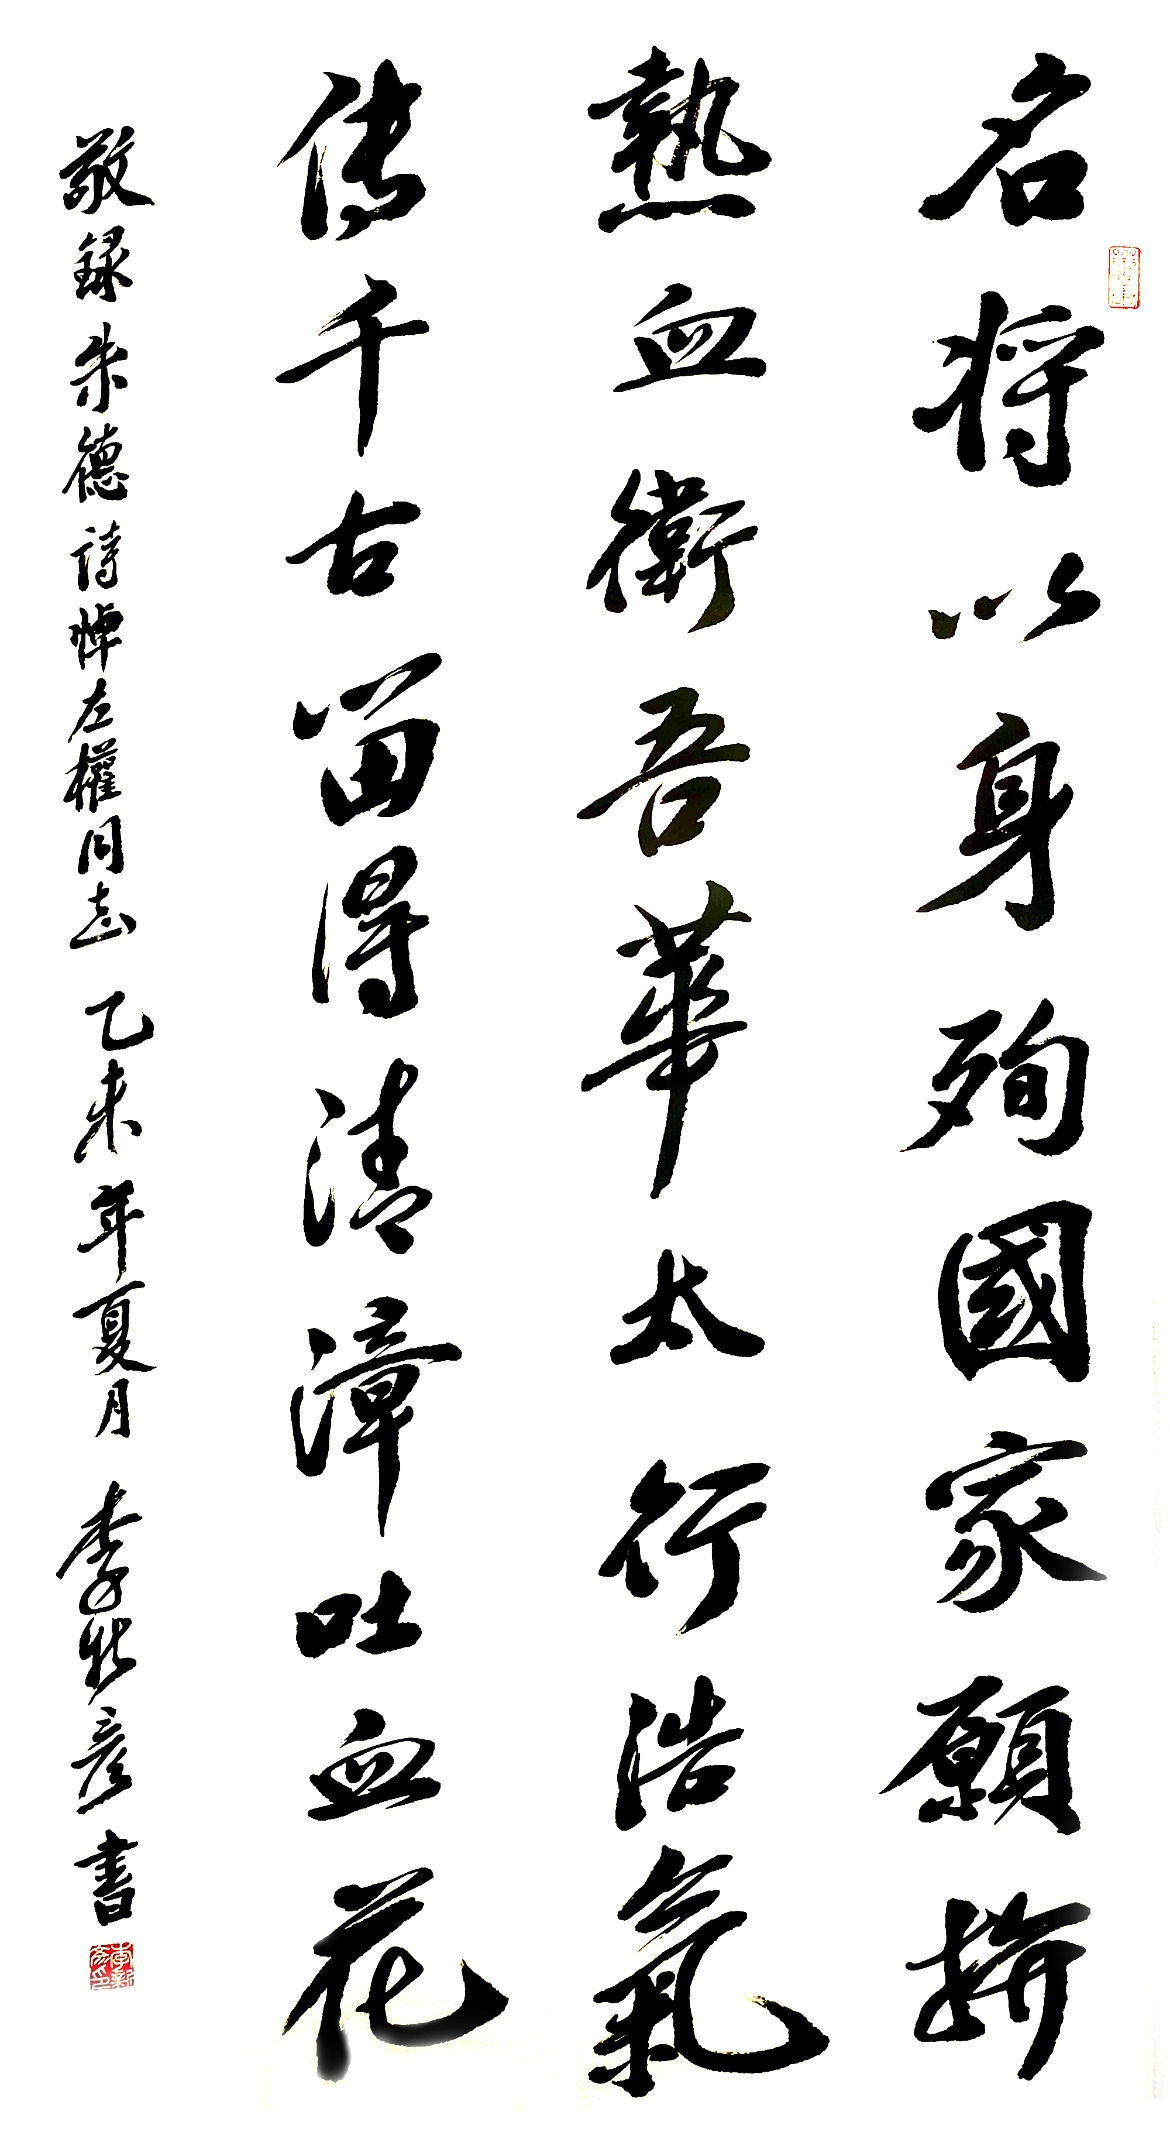 名将以身殉國家願拚
熱血衛吾華太行浩氣
传千古留得清漳吐血花
敬録朱德詩悼左權同志 乙未年夏月 李新彦書